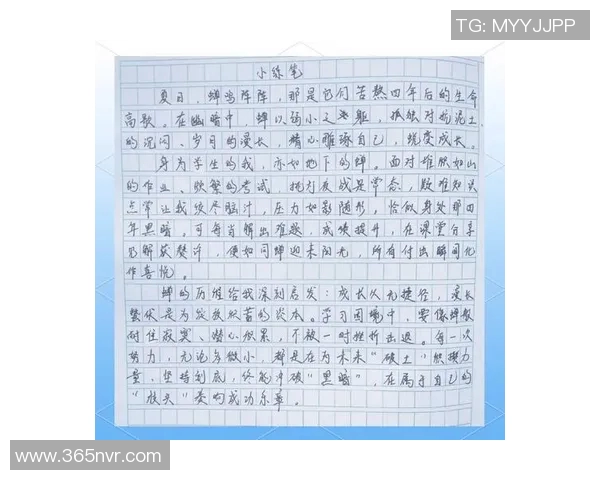 TG: MYYJJPP
小练笔
夏日，蝉鸣阵阵，那是它们苦熬四年后的生命
高歌。在幽暗中，蝉以弱小之躯，孤独对抗泥土
的沉闷、岁月的漫长，精心雕琢自己，蜕变成长。
身为学生的我，亦如地下的蝉。面对堆积如山
的作业、频繁的考试，挑灯夜战是常态，疑难知识
点常让我绞尽脑汁，压力如影随形，恰似身处那四
年黑暗。可每当解出难题，成绩提升，在课堂分享
见解获赞许，便如同蝉迎来阳光，所有付出瞬间化
作喜悦。
蝉的历程给我深刻启发：成长从无捷径，漫长
蛰伏是为绽放积蓄的资本。学习困境中，要像蝉般
耐住寂寞、潜心积累，不被一时挫折击退。每一次
努力，无论多微小，都是在为未来“破土”积攒力
量，坚持到底，终能冲破“黑暗”，在属于自己的
“枝头”奏响成功乐章。
www.365nvr.com